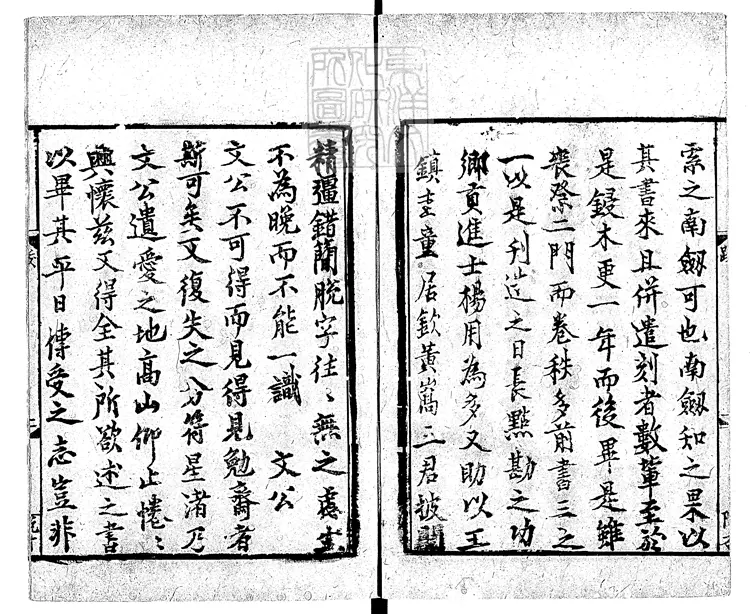 索之南劔可也南劔知之果以
其書来且併遣刻者數輩至於
是鋟木更一年而後畢是雖
喪祭二門而卷秩多前書三之
一以是刋造之日長點勘之功
鄉貢進士楊用為多又助以王
鎮圭童居欽黄嵩三君披閲
精彊錯蕳脫字往〻無之
不為晚而不能一識 文公
文公不可得而見得見勉齋者
斯可矣又復失之分符星渚乃
文公遺愛之地髙山仰止惓〻
興懷兹又得全其所欲述之書
以畢其平日傳受之志豈非
東洋文化研究所圖